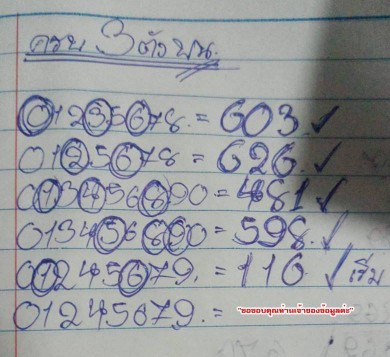 ครบ 3 ตัวบน.
01235678. = 603. ✓
0125678 = 626. ✓
013456890 = 481 ✓
013456890 = 598. ✓
01245679. = 116 ✓ เริ่ม
01245679. =
"ขอขอบคุณท่านเจ้าของข้อมูลค่ะ"